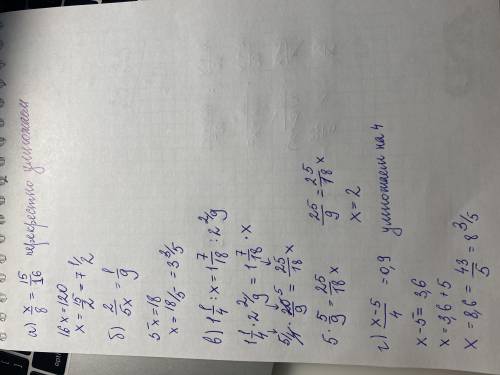 а) x/8 = 15/16 перекрестно умножаем
16x = 120
x = 15/2 = 7 1/2
б) 2/5x = 1/9
5x = 18
x = 18/5 = 3 3/5
в) 1 1/4 : x = 1 7/18 : 2 2/9
1 1/4 · 2 2/9 = 1 7/18 · x
5/4 · 20/9 = 25/18 x
5 · 5/9 = 25/18 x
25/9 = 25/18 x
x = 2
г) x-5/4 = 0,9 умножаем на 4
x - 5 = 3,6
x = 3,6 + 5
x = 8,6 = 43/5 = 8 3/5